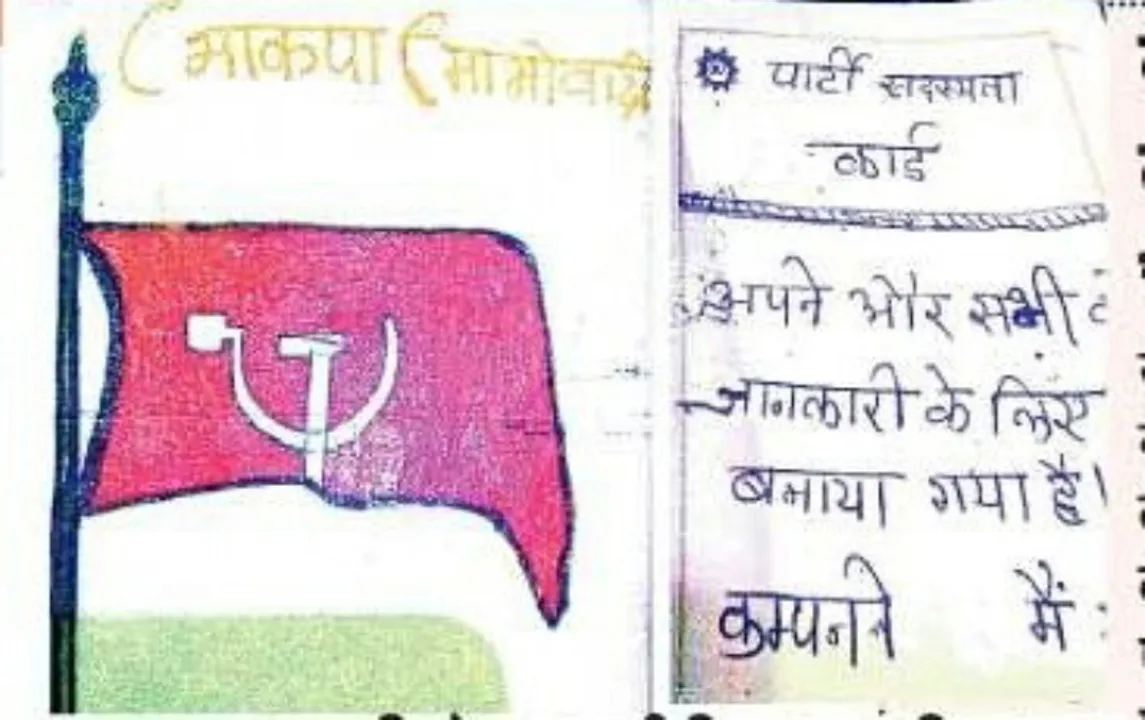 (भाकपा (माओवादी
पार्टी सदस्यता
कार्ड
अपने और सभी
जानकारी के लिए
बनाया गया है।
में